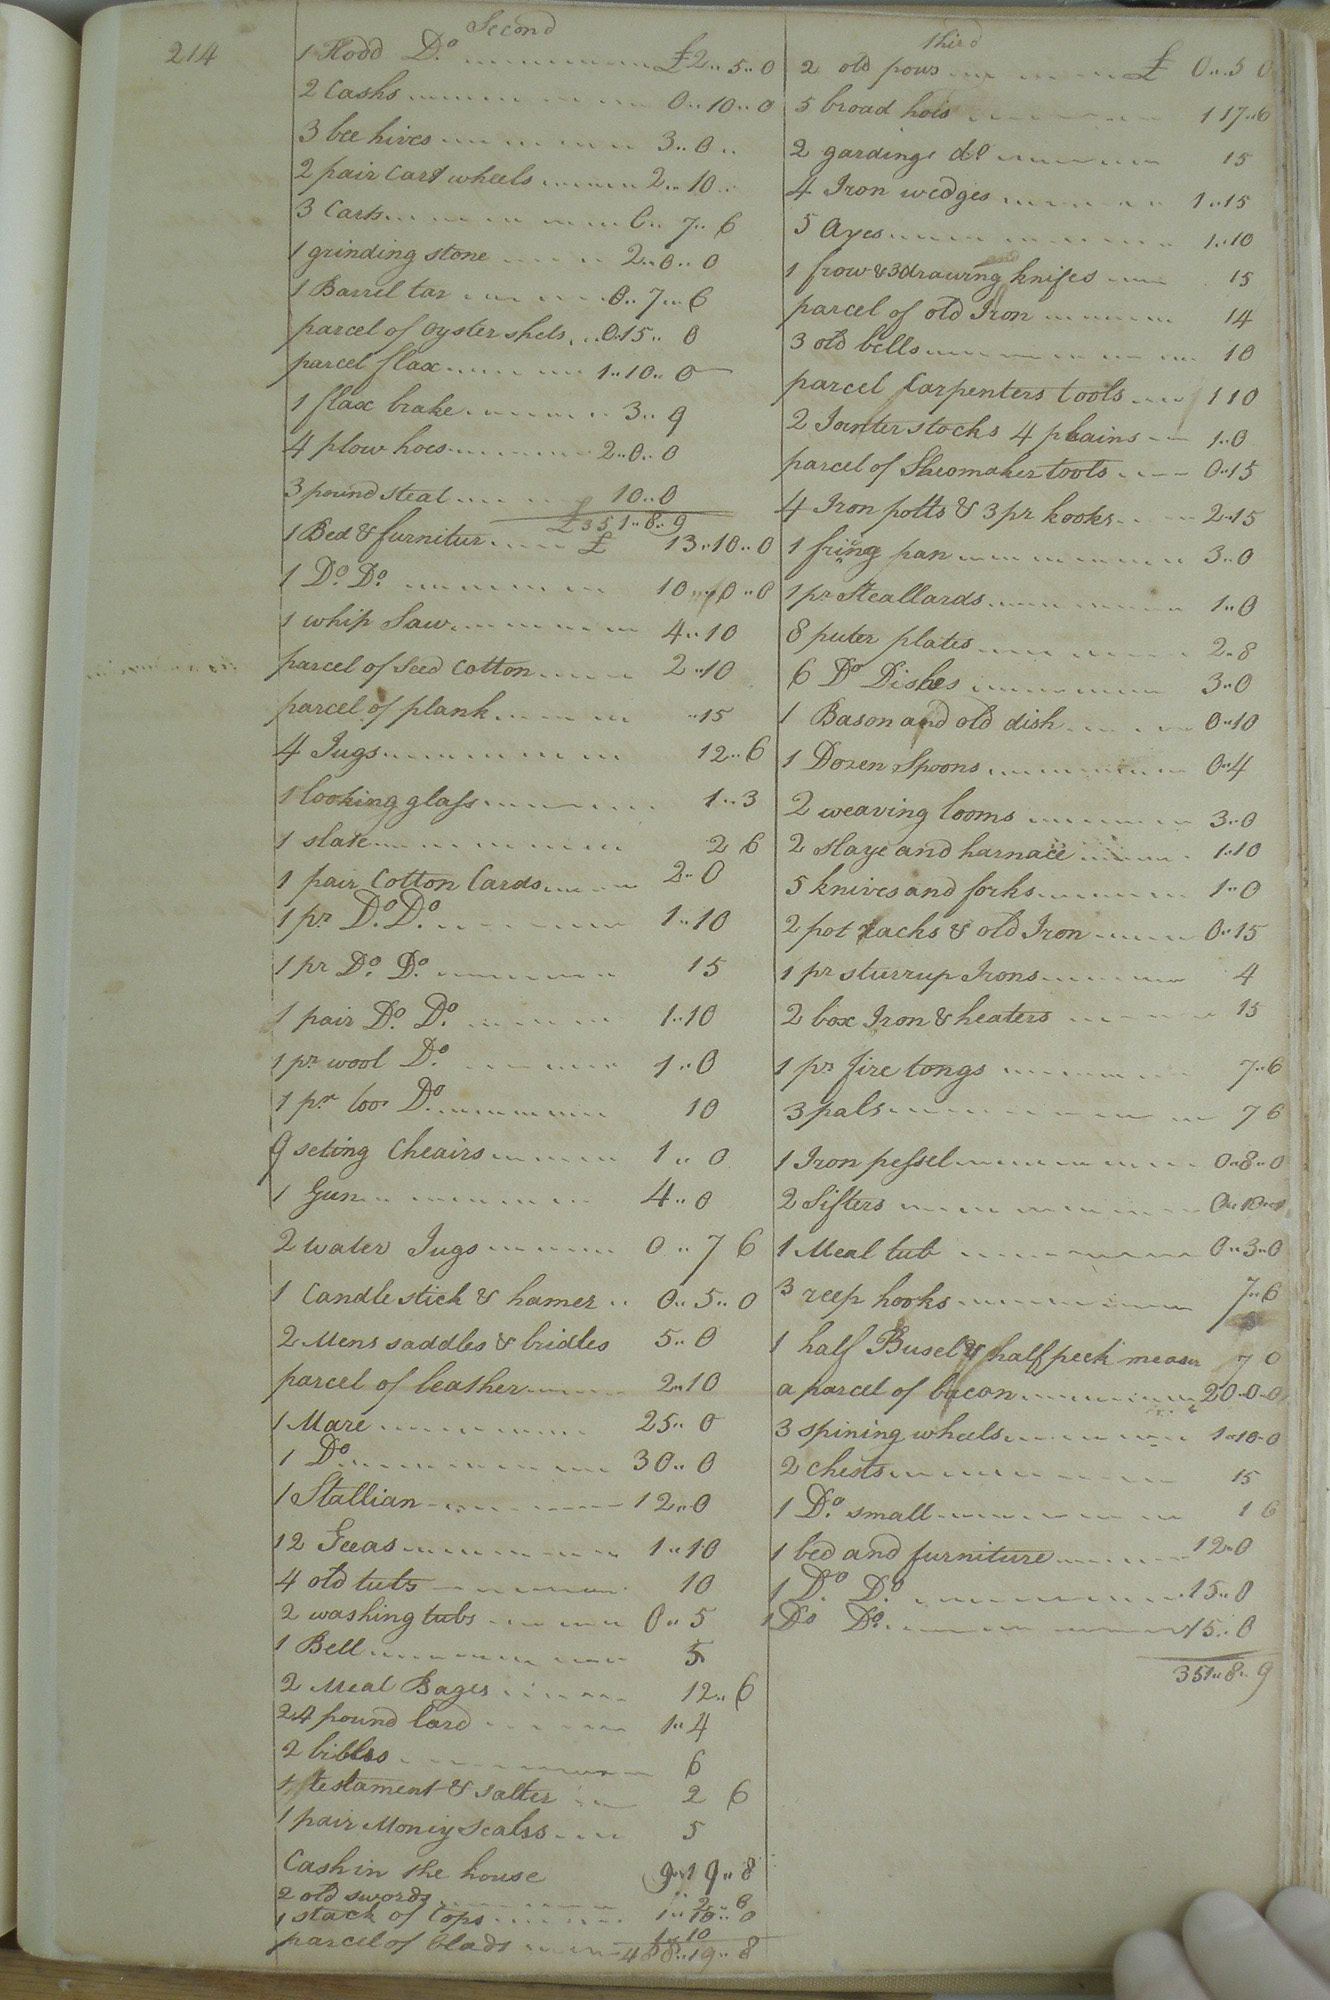 214
Second
1 Hodd Do. £2..5..0
2 Casks 0..10..0
3 bee hives 3..0..
2 pair Cart wheels 2..10..
3 Carts 6..7..6
1 grinding stone 2..0..0
1 Barrel tar 0..7..6
parcel of oyster shels 0.15..0
parcel flax 1..10..0
1 flax brake 3..9
4 plow hoes 2..0..0
3 pound steal 10..0
£351..8..9
1 Bed & furnitur £ 13..10..0
1 Do. Do. 10..10..0
1 whip Saw 4..10
parcel of Seed Cotton 2..10
parcel of plank ..15
4 Jugs 12..6
1 looking glass 1..3
1 slate 2 6
1 pair Cotton Cards 2..0
1 pr Do. Do. 1..10
1 pr Do. Do. 15
1 pair Do. Do. 1..10
1 pr wool Do. 1..0
1 pr Do. 10
9 seting Cheairs 1..0
1 Gun 4..0
2 water Jugs 0..7 6
1 Candle stick & hamer 0..5..0
2 Mens saddles & bridles 5..0
parcel of leather 2..10
1 Mare 25..0
1 Do 30..0
1 Stallian 12..0
12 Geeas 1..10
4 old tubs 10
2 washing tubs 0..5
1 Bell 5
2 Meal Bages 12..6
24 pound lard 1..4
2 bibles 6
1 testament & salter 2 6
1 pair Money Scalss 5
Cash in the house 9..19..8
2 old swords 2..6
1 stack of tops 1..10..0
parcel of blads 1..10
488..19..8
third
2 old pows £ 0..5 0
5 broad hois 1 17..6
2 gardinge do 15
4 Iron wedges 1..15
5 Axes 1..10
1 frow & 3 drawing knifes 15
parcel of old Iron 14
3 old bells 10
parcel Carpenters tools 1 10
2 Jointer stocks 4 plains 1..0
parcel of Sheomaker tools 0..15
4 Iron potts & 3 pr hooks 2..15
1 fring pan 3..0
1 pr Steallards 1..0
8 puter plates 2..8
6 Do Dishes 3..0
1 Bason and old dish 0..10
1 Dozen Spoons 0..4
2 weaving looms 3..0
2 slaye and harnace 1..10
5 knives and forks 1..0
2 pot racks & old Iron 0..15
1 pr sturrup Irons 4
2 box Iron & heaters 15
1 pr fire tongs 7..6
3 pals 7 6
1 Iron pessel 0..8..0
2 Sifters
1 Meal tub 0..3..0
3 reep hooks 7..6
1 half Busel & half peck measur 7 0
a parcel of bacon 20..0..0
3 spining wheels 1..10..0
2 Chests 15
1 Do. small 1 6
1 bed and furniture 12..0
1 Do. Do. 15..0
1 Do Do. 15..0
351..8..9